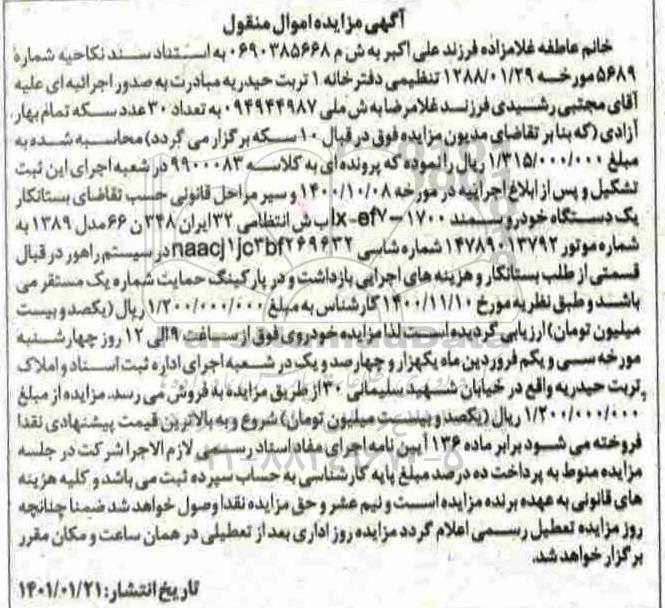 آگهی مزایده اموال منقول
خانم عاطفه غلامزاده فرزند علی اکبر به ش م ۰۶۹۰۳۸۵۶۶۸ به استناد سند نکاحیه شماره
۵۶۸۹ مورخه ۱۲۸۸/۰۱/۲۹ تنظیمی دفترخانه ۱ تربت حیدریه مبادرت به صدور اجرائیه ای علیه
آقای مجتبی رشیدی فرزند غلامرضا به ش ملی ۰۹۴۹۴۴۹۸۷ به تعداد ۳۰ عدد سکه تمام بهار
آزادی (که بنا بر تقاضای مدیون مزایده فوق در قبال ۱۰ سکه برگزار می گردد) محاسبه شده به
مبلغ ۱/۳۱۵/۰۰۰/۰۰۰ ریال را نموده که پرونده ای به کلاسه ۹۹۰۰۰۸۳ در شعبه اجرای این ثبت
تشکیل و پس از ابلاغ اجرائیه در مورخه ۱۴۰۰/۱۰/۰۸ و سیر مراحل قانونی حسب تقاضای بستانکار
یک دستگاه خودرو سمند lx-ef۷-۱۷۰۰ ب ش انتظامی ۳۲ ایران ۳۴۸ ن ۶۶ مدل ۱۳۸۹ به
شماره موتور ۱۴۷۸۹۰۱۳۷۹۲ شماره شاسی naacj۱jc۳bf۲۶۹۶۳۲ در سیستم راهور در قبال
قسمتی از طلب بستانکار و هزینه های اجرایی بازداشت و در پارکینگ حمایت شماره یک مستقر می
باشد و طبق نظریه مورخ ۱۴۰۰/۱۱/۱۰ کارشناس به مبلغ ۱/۲۰۰/۰۰۰/۰۰۰ ریال (یکصد و بیست
میلیون تومان) ارزیابی گردیده است لذا مزایده خودروی فوق از ساعت ۹ الی ۱۲ روز چهارشنبه
مورخه سی و یکم فروردین ماه یکهزار و چهارصد و یک در شعبه اجرای اداره ثبت اسناد و املاک
تربت حیدریه واقع در خیابان شهید سلیمانی ۳۰ از طریق مزایده به فروش می رسد. مزایده از مبلغ
۱/۲۰۰/۰۰۰/۰۰۰ ریال (یکصد و بیست میلیون تومان) شروع و به بالاترین قیمت پیشنهادی نقدا
فروخته می شود برابر ماده ۱۳۶ آیین نامه اجرای مفاد اسناد رسمی لازم الاجرا شرکت در جلسه
مزایده منوط به پرداخت ده درصد مبلغ پایه کارشناسی به حساب سپرده ثبت می باشد و کلیه هزینه
های قانونی به عهده برنده مزایده است و نیم عشر و حق مزایده نقدا وصول خواهد شد ضمنا چنانچه
روز مزایده تعطیل رسمی اعلام گردد مزایده روز اداری بعد از تعطیلی در همان ساعت و مکان مقرر
برگزار خواهد شد.
تاریخ انتشار: ۱۴۰۱/۰۱/۲۱